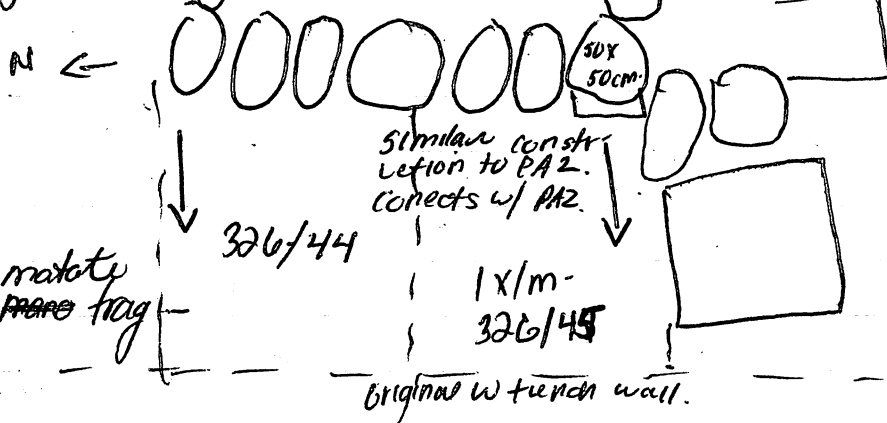 N
50x
50cm.
Similar constr-
uction to PA2.
Conects w/ PA2.
326/44
matate
mano frag
1x1m.
326/45
original w trench wall.